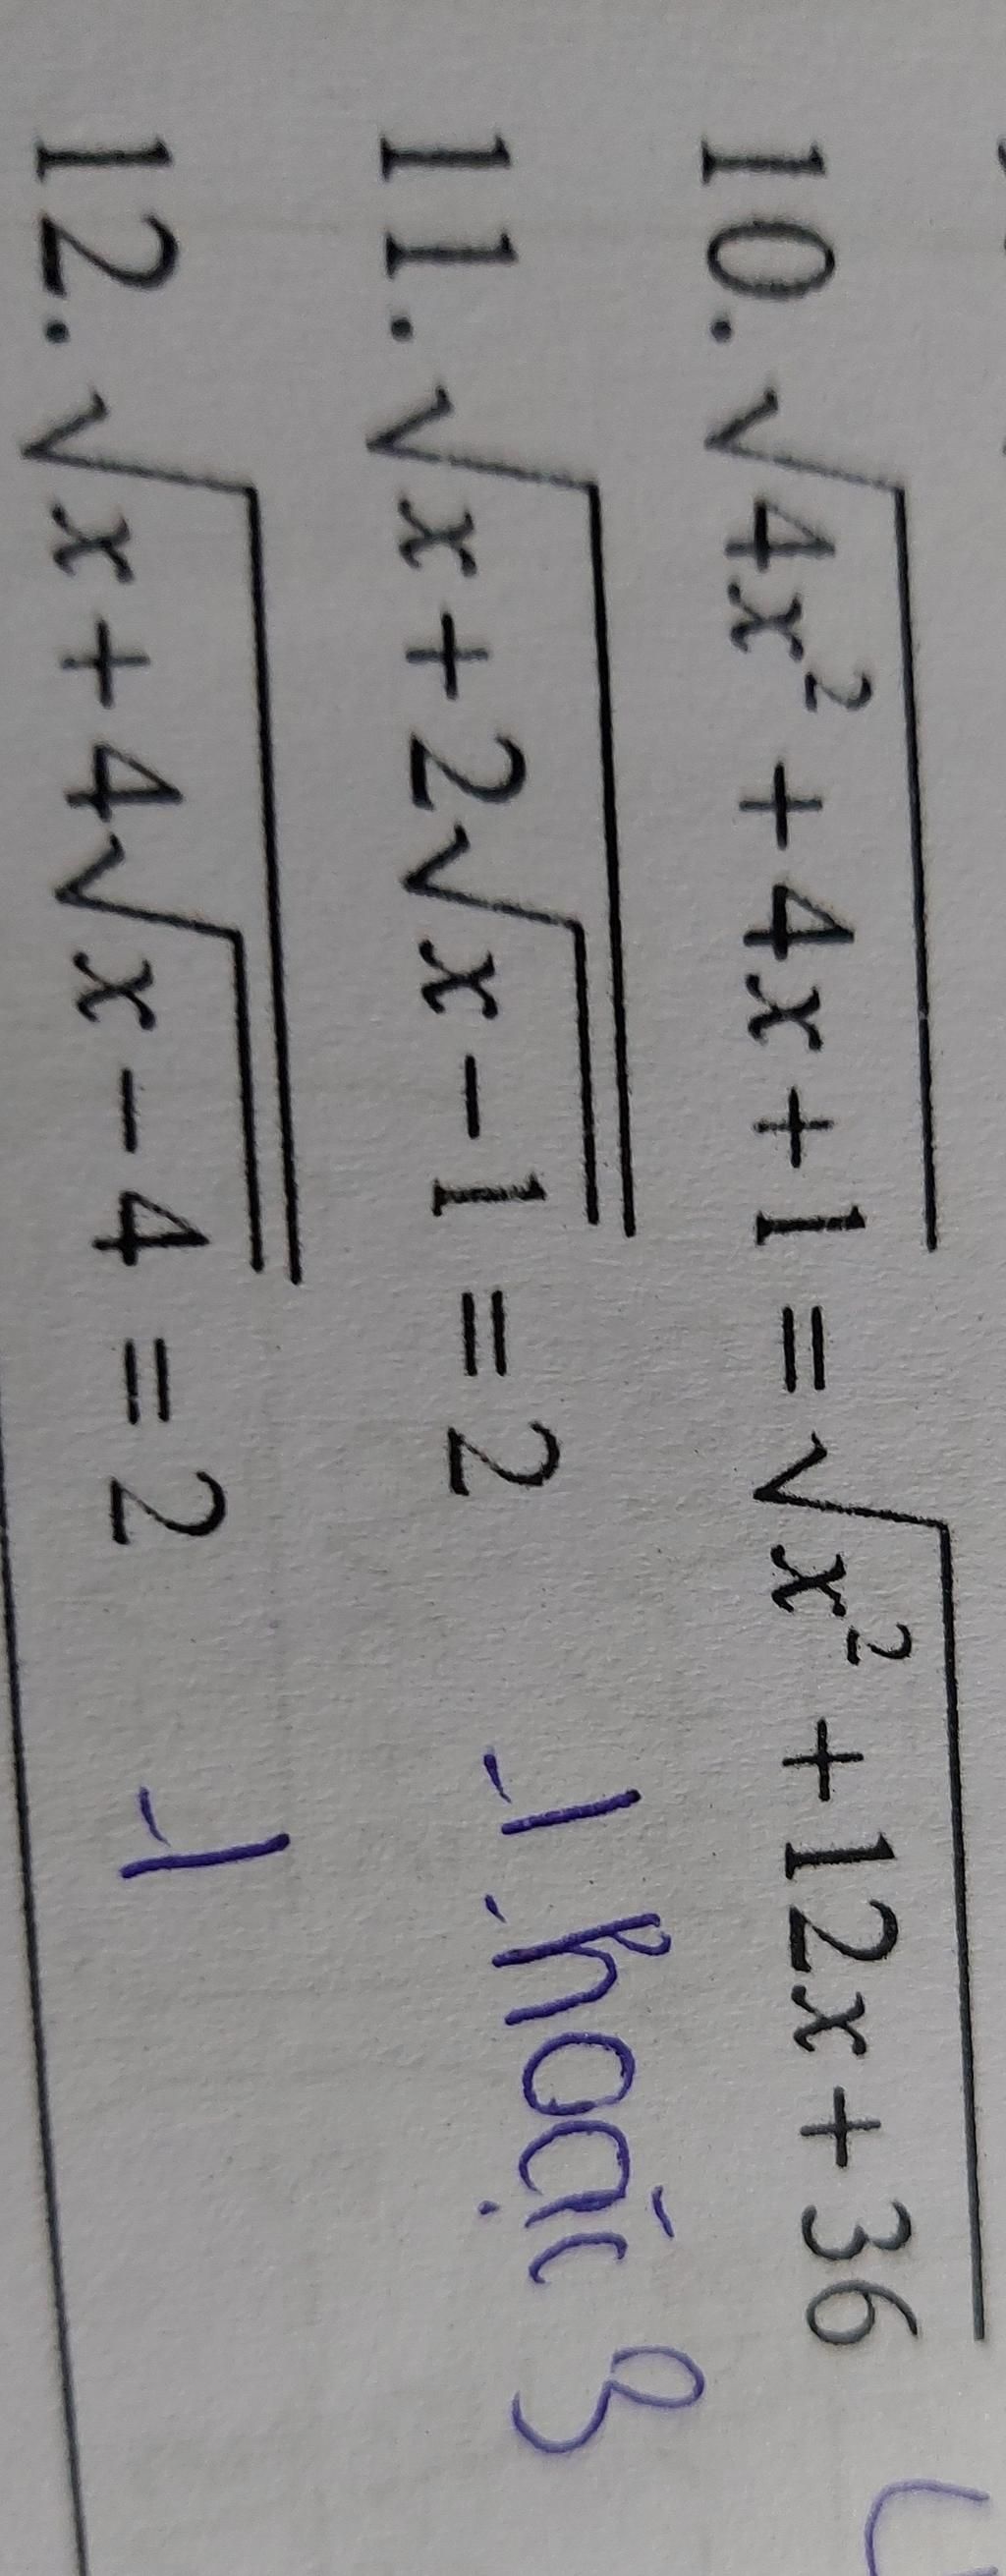 10. √(4x² + 4x + 1) = √(x² + 12x + 36)
11. √(x + 2√(x - 1)) = 2 -1 hoặc 3
12. √(x + 4√(x - 4)) = 2 -1